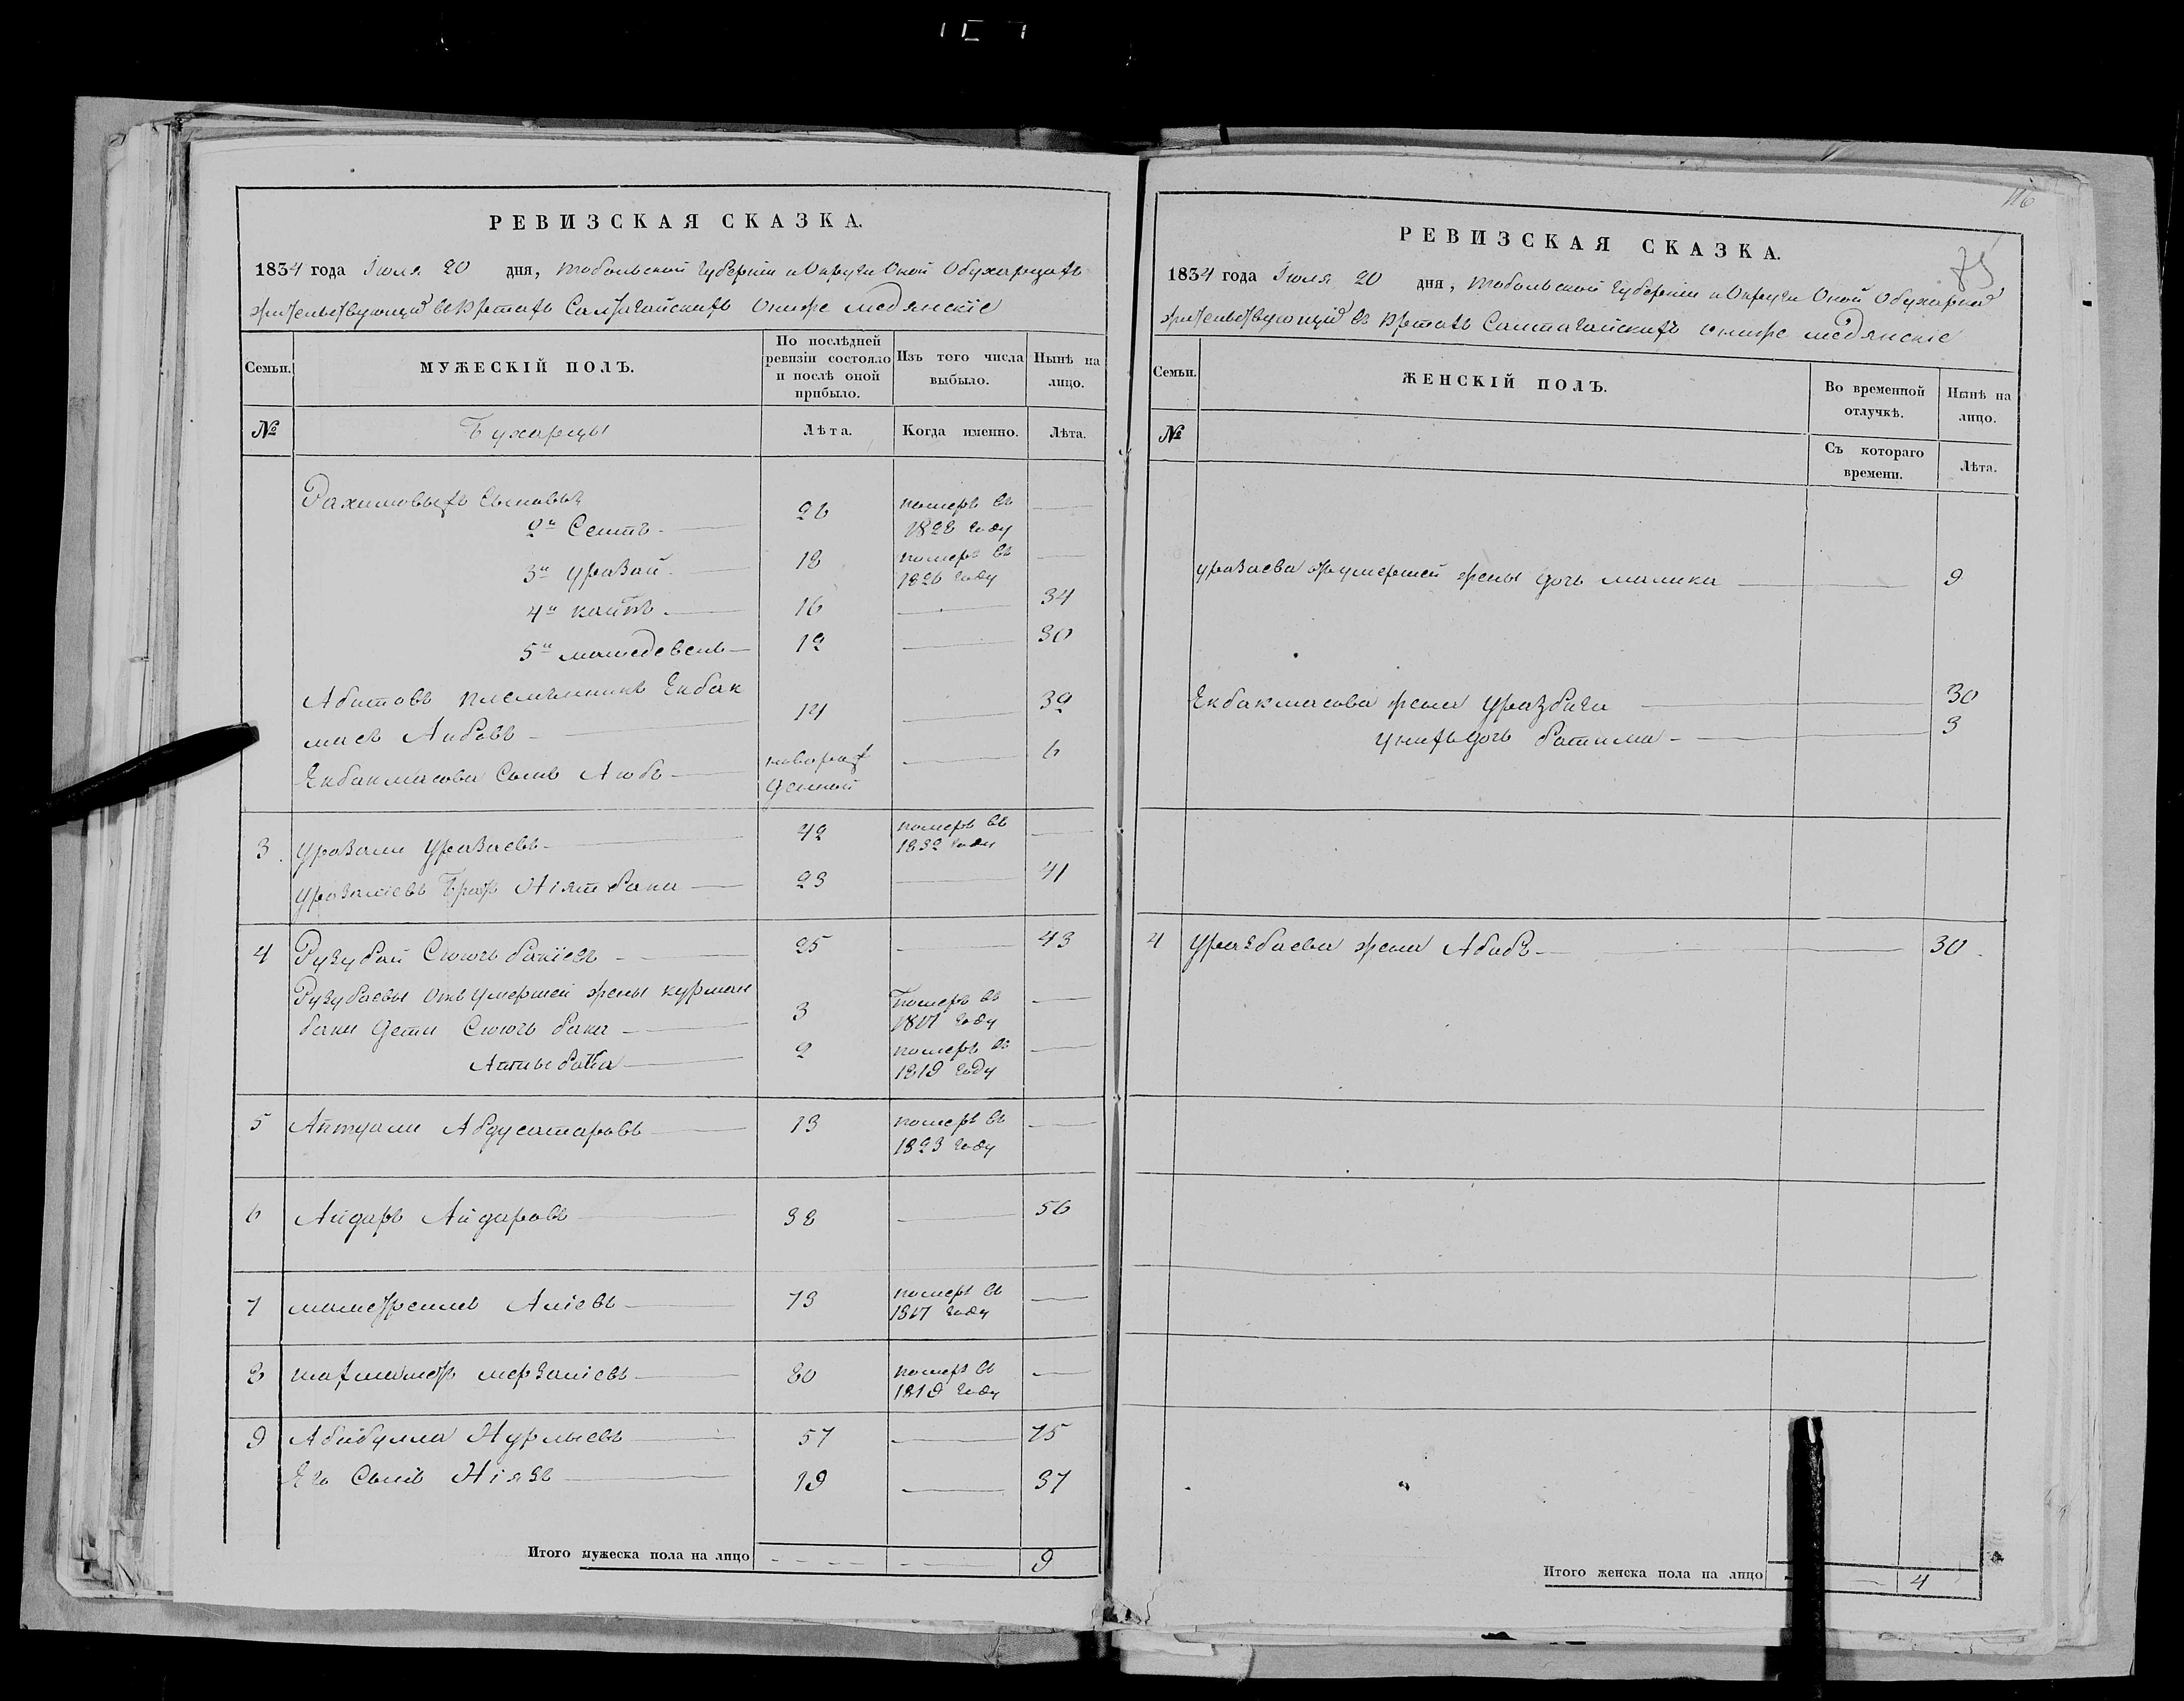 РЕВИЗСКАЯ СКАЗКА.
1834 года Іюля 20 дня, тобольской губерніи и Округи Оной О бухарцахъ
жительствующихъ въ Юртахъ Салтагайскихъ они же медянскіе
Семьи.
МУЖЕСКІЙ ПОЛЪ.
По послѣдней ревизіи состояло и послѣ оной прибыло.
Изъ того числа выбыло.
Нынѣ на лицо.
№
Бухарцы
Лѣта.
Когда именно.
Лѣта.
Рахимовыхъ сыновья
2й Сеитъ 26 померъ въ 1828 году
3й Уразай 18 померъ въ 1826 году
4й 16 34
5й 12 30
Абитовъ племянникъ Екбак
масъ 14 32
Екбакмасова сынъ Аюбъ новорож
денной 6
3 Уразали Уразаевъ 42 померъ въ 1832 году
Уразаліевъ братъ Ніятбаки 23 41
4 Рузубай Сюючь бакіевъ 25 43
Рузубаевы отъ умершей жены курман
баки дети Сюючь баки 3 померъ въ 1817 году
2 померъ въ 1819 году
5 Аптуали Абдусатаровъ 13 померъ въ 1823 году
6 Айдаръ Айдаровъ 38 56
7 Аліевъ 73 померъ въ 1817 году
8 мерзаліевъ 80 померъ въ 1819 году
9 Абибулла Нурлыевъ 57 75
Его сынъ Ніязъ 19 37
Итого мужеска пола на лицо 9
116
75
РЕВИЗСКАЯ СКАЗКА.
1834 года Іюля 20 дня, тобольской губерніи и Округи Оной О бухарцахъ
жительствующихъ въ Юртахъ Салтагайскихъ они же медянскіе
Семьи.
ЖЕНСКІЙ ПОЛЪ.
Во временной отлучкѣ.
Нынѣ на лицо.
№
Съ котораго времени.
Лѣта.
Уразаева отъ умершей жены дочь малика 9
Екбакмасова жена Уразбига 30
У нихъ дочь Батима 3
4 Уразбаева жена Абабъ 30
Итого женска пола на лицо 4